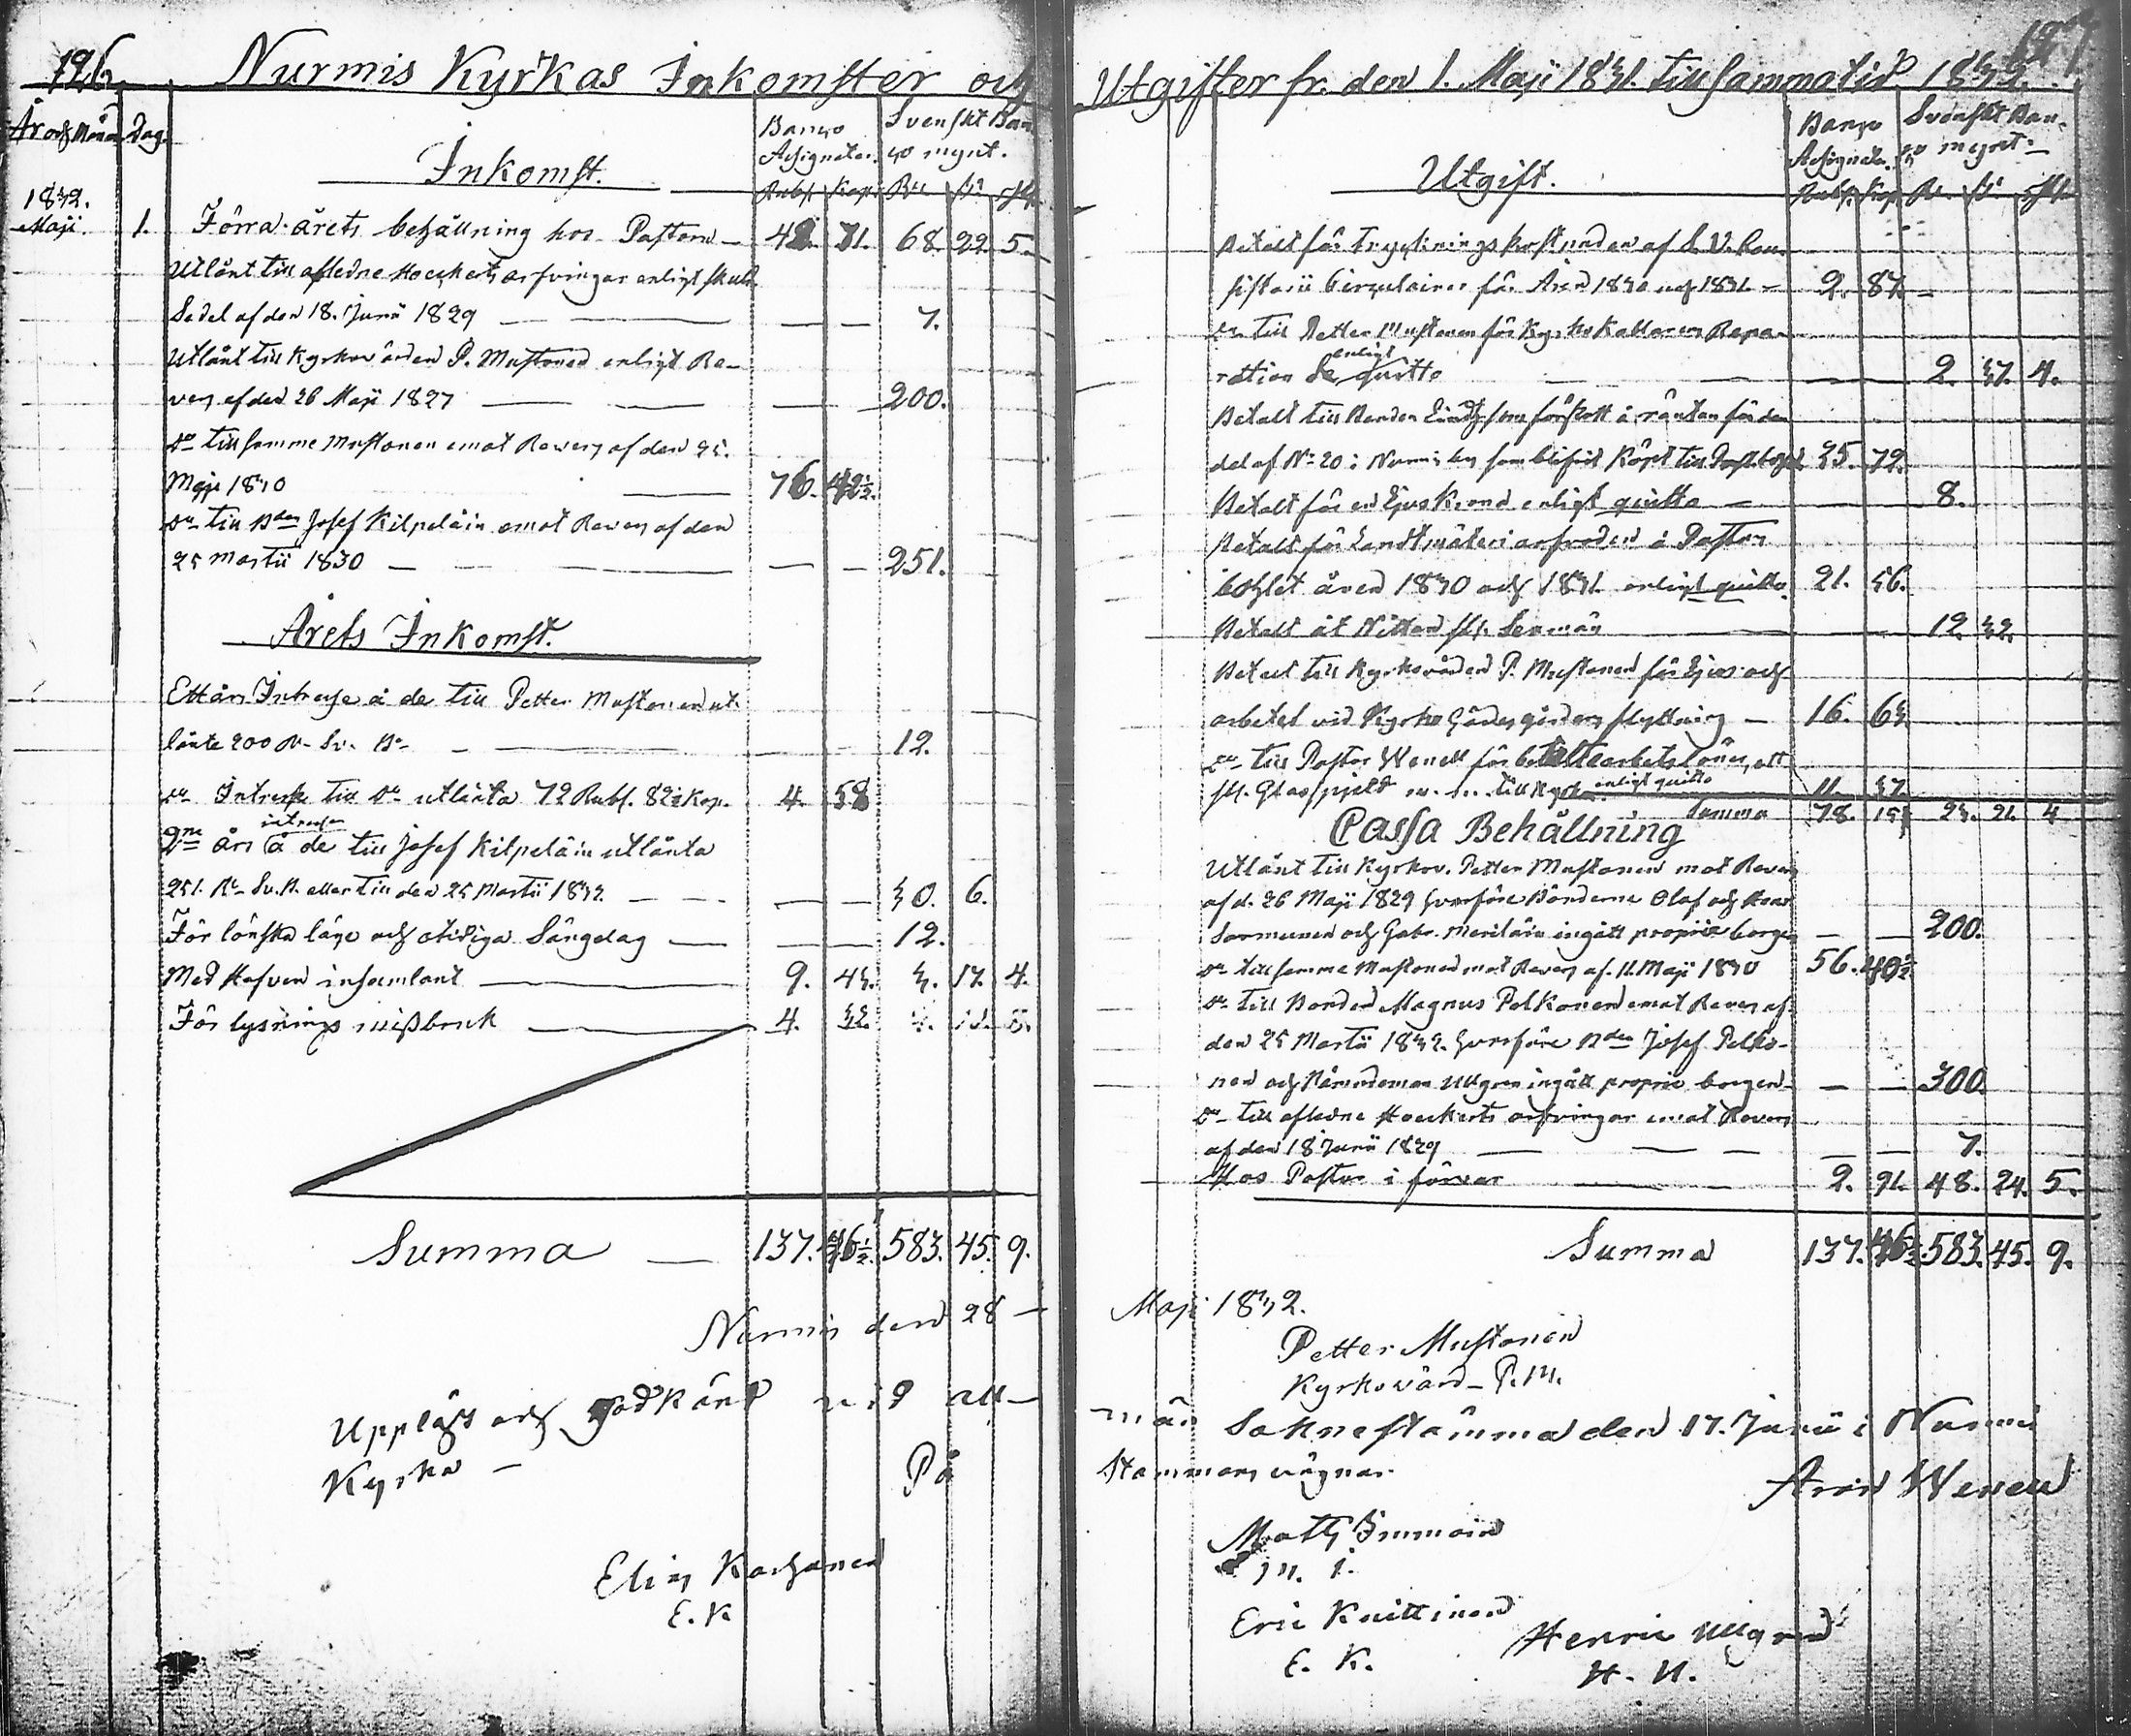 126.
Nurmis Kyrkas Inkomster och
År och Månad Dag.
Inkomst.
Banco Assignater. Svenskt Banco mynt.
Rubl. Kop. Rd. sk. rst.
1832.
Maji. 1. Förra årets behållning hos Pastorn — 42. 71. 68. 22. 5.
Utlånt till afledne Hoeckerts arfvingar enligt skuld
Sedel af den 18. Junii 1829 — — — 7.
Utlånt till Kyrkovärden P. Mustonen enligt Re-
vers af den 26 Maji 1827 — — — 200.
do till samme Mustonen emot Revers af den 25.
Maji 1830 — 76. 42½.
do till Bden Josef Kilpeläin emot Revers af den
25 Martii 1830 — — — 251.
Årets Inkomst.
Ett års Intresse å de till Petter Mustonen ut-
lånte 200 Rd Sv. Bo — — 12.
do Intresse till do utlånta 72 Rubl. 82½ Kop. 4. 58
2ne års intresse å de till Josef Kilpeläin utlånta
251. Rd Sv. B. eller till den 25 Martii 1832. — — 30. 6.
För lönska läge och otidiga Sängelag — — 12.
Med Hafven insamlant — 9. 43. 3. 17. 4.
För lysnings missbruk — 4. 32.
Summa — 137. 46½. 583. 45. 9.
Nurmis den 28 —
Uppläst och godkänt vid all-
Kyrka — På
Elias Karhanen
E. K
127
Utgifter fr. den 1. Maji 1831. till samma tid 1832.
Utgift.
Banco Assignater. Svenskt Banco mynt.
Rubl. Kop. Rd. sk. rst.
Betalt för Tryckningskostnaden af S. V. Con-
sistorii Circulairer för Åren 1830 och 1831 — 2. 87.
do till Petter Mustonen för Kyrko Kallarens Repa-
ration enligt quitto — — 2. 37. 4.
Betalt till Bonden såsom förskott å räntan för den
del af No 20 i Nurmis by som blifvit köpt till Past. bohl 25. 72.
Betalt för en Ljus Krona enligt quitto — — 8.
Betalt för Landtmäteri arfvoden å Pastors
bohlet åren 1830 och 1831. enligt quitto. 21. 56.
Betalt åt — 12. 32.
Betalt till Kyrkovärden P. Mustonen för Ljus och
arbetet vid Kyrko Gärdesgårdens flyttning — 16. 63.
do till Pastor Wenell för betalte arbetslöner, ett
st. Glasspjeld m. m. till Kyrkan enligt quitto 11. 37.
Summa 78. 15. 23. 21. 4
Cassa Behållning
Utlånt till Kyrkov. Petter Mustonen mot Revers
af d. 26 Maji 1829 hvarföre Bönderne Olof och
Sormunen och Gabr. Meriläin ingått proprie borgen — — 200.
do till samme Mustonen mot Revers af 11. Maji 1830 56. 40½
do till Bonden Magnus Polkonen emot Revers af
den 25 Martii 1832. hvarföre Bden Josef Polko-
nen och Nämndeman Ullgren ingått proprie borgen — — 300.
do till afledne Hoeckerts arfvingar emot Revers
af den 18 Junii 1829 — — — 7.
Hos Pastor i förvar — — 2. 91. 48. 24. 5.
Summa 137. 46½. 583. 45. 9.
Maji 1832.
Petter Mustonen
Kyrkovärd P. M.
män Soknestämma den 17. Junii i Nurmis
Stämmans vägnar.
Arvid Wenell
Matts Immoin
M. I.
Eric Knittinen
E. K.
Henric Ullgren
H. U.